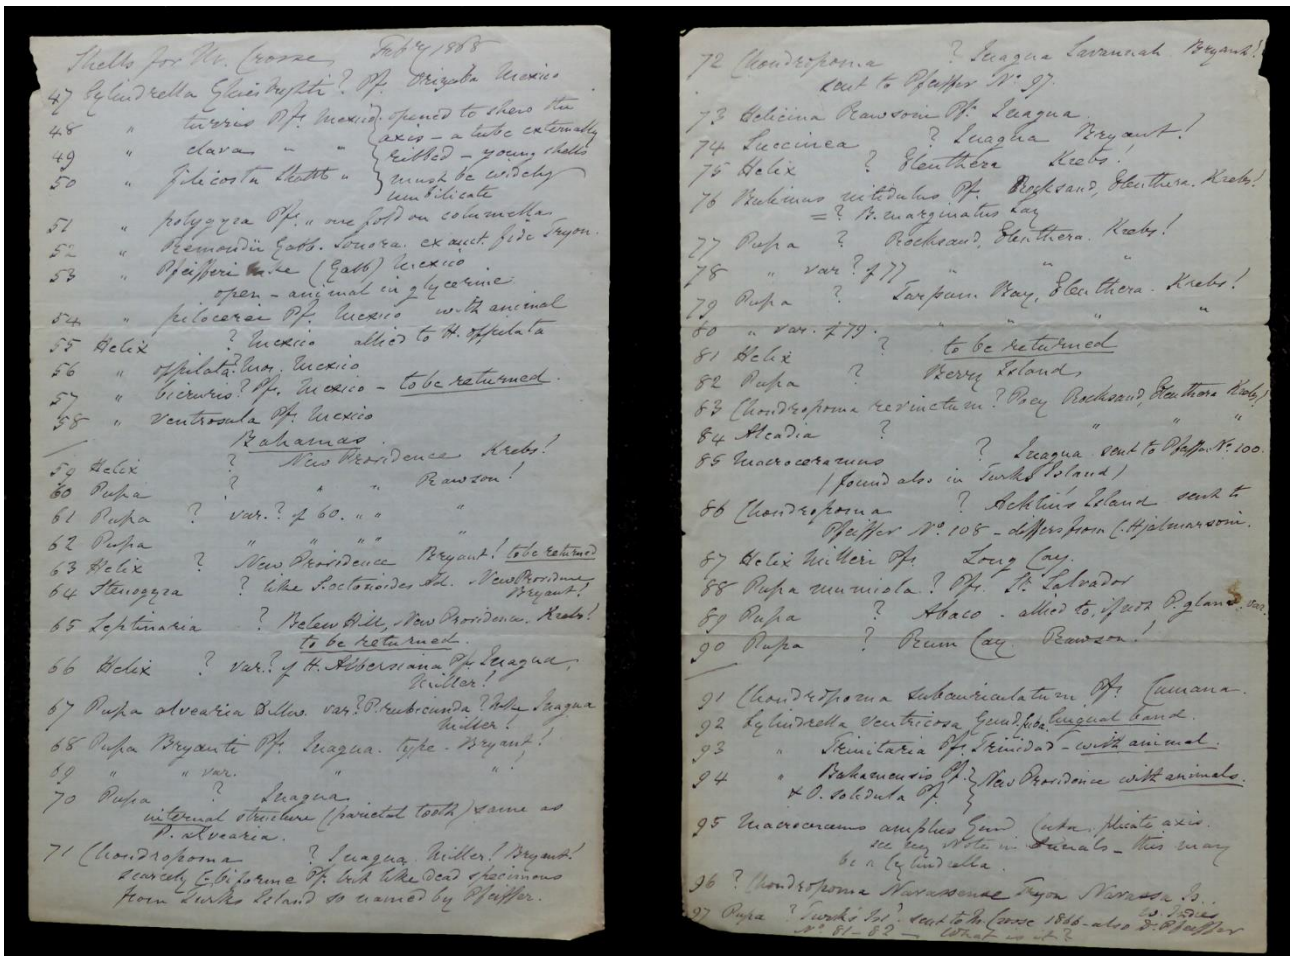 Shells for Mr. Crosse Feby 1868
47 Cylindrella Ghiesbrighti? Pf. Orizaba Mexico
48 " turris Pf. Mexico } opened to shew the
49 " clava " " } axis - a tube externally
50 " filicosta Shuttl " } ribbed - young shells
must be widely
umbilicate
51 " polygyra Pf. " one fold on columella
52 " Remondii Gabb. Sonora. ex auct. fide Tryon.
53 " Pfeifferi (Gabb) Mexico
open - animal in glycerine
54 " pilocerei Pf. Mexico with animal
55 Helix ? Mexico allied to H. oppilata
56 " oppilata? Mor. Mexico
57 " bicruris? Pf. Mexico - to be returned.
58 " ventrosula Pf. Mexico
Bahamas.
59 Helix ? New Providence Krebs!
60 Pupa ? " " Rawson!
61 Pupa ? var.? of 60. " " "
62 Pupa " " " " "
63 Helix ? New Providence Bryant! to be returned
64 Stenogyra ? like S. octonoides Ad. New Providence
Bryant!
65 Leptinaria ? Belew Hill, New Providence. Krebs!
to be returned.
66 Helix ? var.? of H. Albersiana Pf. Inagua,
Miller!
67 Pupa alvearia Dillw. var? P. rubicunda? Mke Inagua
Miller!
68 Pupa Bryanti Pf. Inagua. type - Bryant!
69 " " var. " "
70 Pupa ? Inagua
internal structure (parietal tooth) same as
P. alvearia.
71 Chondropoma ? Inagua. Miller! Bryant!
scarcely C. biforme Pf. but like dead specimens
from Turks Island so named by Pfeiffer.
72 Chondropoma ? Inagua Savannah. Bryant!
sent to Pfeiffer No 97.
73 Helicina Rawsoni Pf. Inagua.
74 Succinea ? Inagua Bryant!
75 Helix ? Eleuthera Krebs!
76 Bulimus nitidulus Pf. Rocksand, Eleuthera. Krebs!
=? B. marginatus Say
77 Pupa ? Rocksand, Eleuthera. Krebs!
78 " var? of 77 " " "
79 Pupa ? Tarpum Bay, Eleuthera. Krebs!
80 " var. of 79. " " " "
81 Helix ? to be returned
82 Pupa ? Berry Islands
83 Chondropoma revinctum? Poey Rocksand, Eleuthera Krebs!
84 Alcadia ? " " "
85 Macroceramus ? Inagua sent to Pfeiffer No. 100.
(found also in Turks Island)
86 Chondropoma ? Acklin's Island sent to
Pfeiffer No. 108 - differs from C. Hjalmarsoni.
87 Helix Milleri Pf. Long Cay.
88 Pupa mumiola? Pf. St. Salvador
89 Pupa ? Abaco - allied to, if not P. glans, var.
90 Pupa ? Rum Cay. Rawson!
91 Chondropoma subauriculatum Pf. Cumana.
92 Cylindrella ventricosa Gund. Cuba. lingual band.
93 " Trinitaria Pf. Trinidad - with animal.
94 " Bahamensis Pf. } New Providence with animals.
& C. solidula Pf. }
95 Macroceramus amplus Gund Cuba. plicate axis.
see my Note in Annals - this may
be a Cylindrella
96 ? Chondropoma Navassense Tryon Navassa Is.
W. Indies
97 Pupa ? Turk's Isd. sent to Mr. Crosse 1866 - also Dr. Pfeiffer
No. 81 - 82 - What is it?